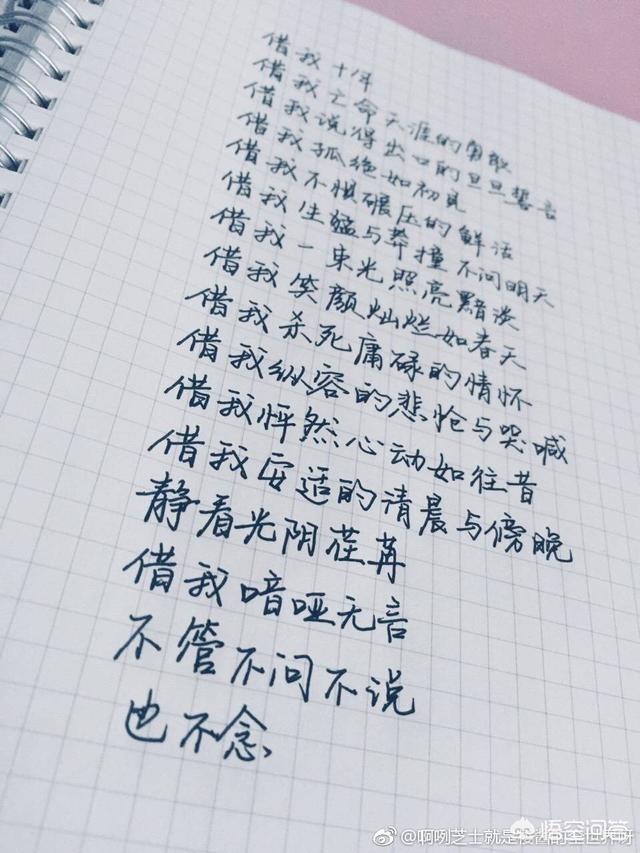 借我十年
借我亡命天涯的勇敢
借我说得出口的旦旦誓言
借我孤绝如初见
借我不惧碾压的鲜活
借我生猛与莽撞不问明天
借我一束光照亮黯淡
借我笑颜灿烂如春天
借我杀死庸碌的情怀
借我纵容的悲怆与哭喊
借我怦然心动如往昔
借我安适的清晨与傍晚
静看光阴荏苒
借我喑哑无言
不管不问不说
也不念
@啊咧芝士就是
悟空问答